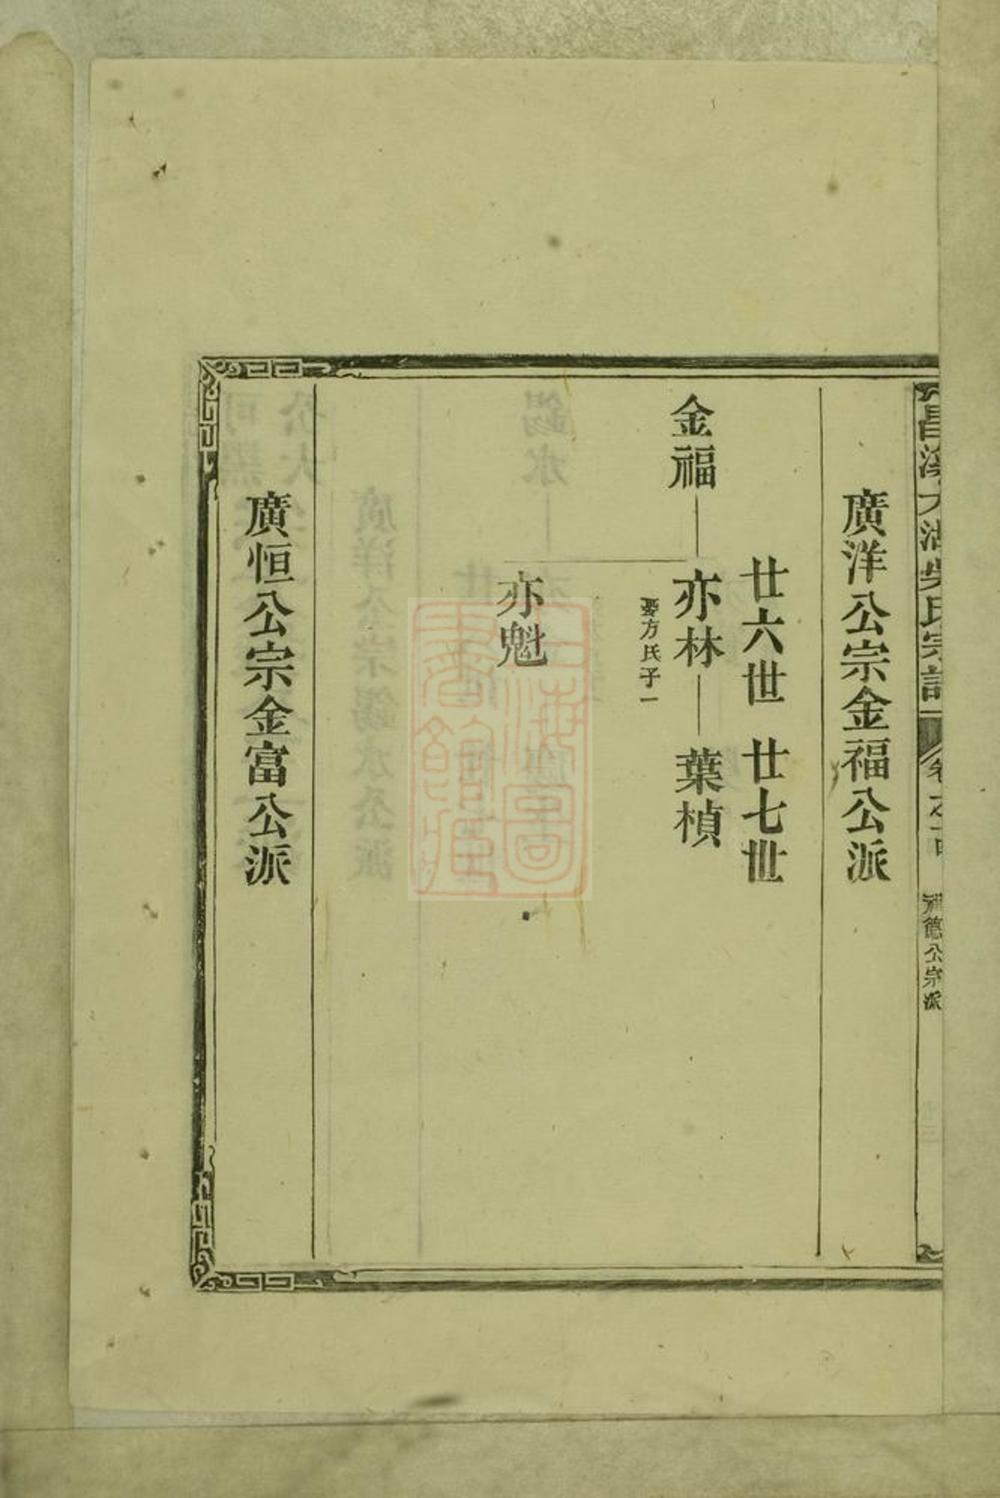 昌溪太湖吳氏宗譜
卷之十四
德公宗派
廣洋公宗金福公派
廿六世 廿七世
金福 亦林 葉楨
娶方氏子一
亦魁
廣恒公宗金富公派
上海圖書館藏